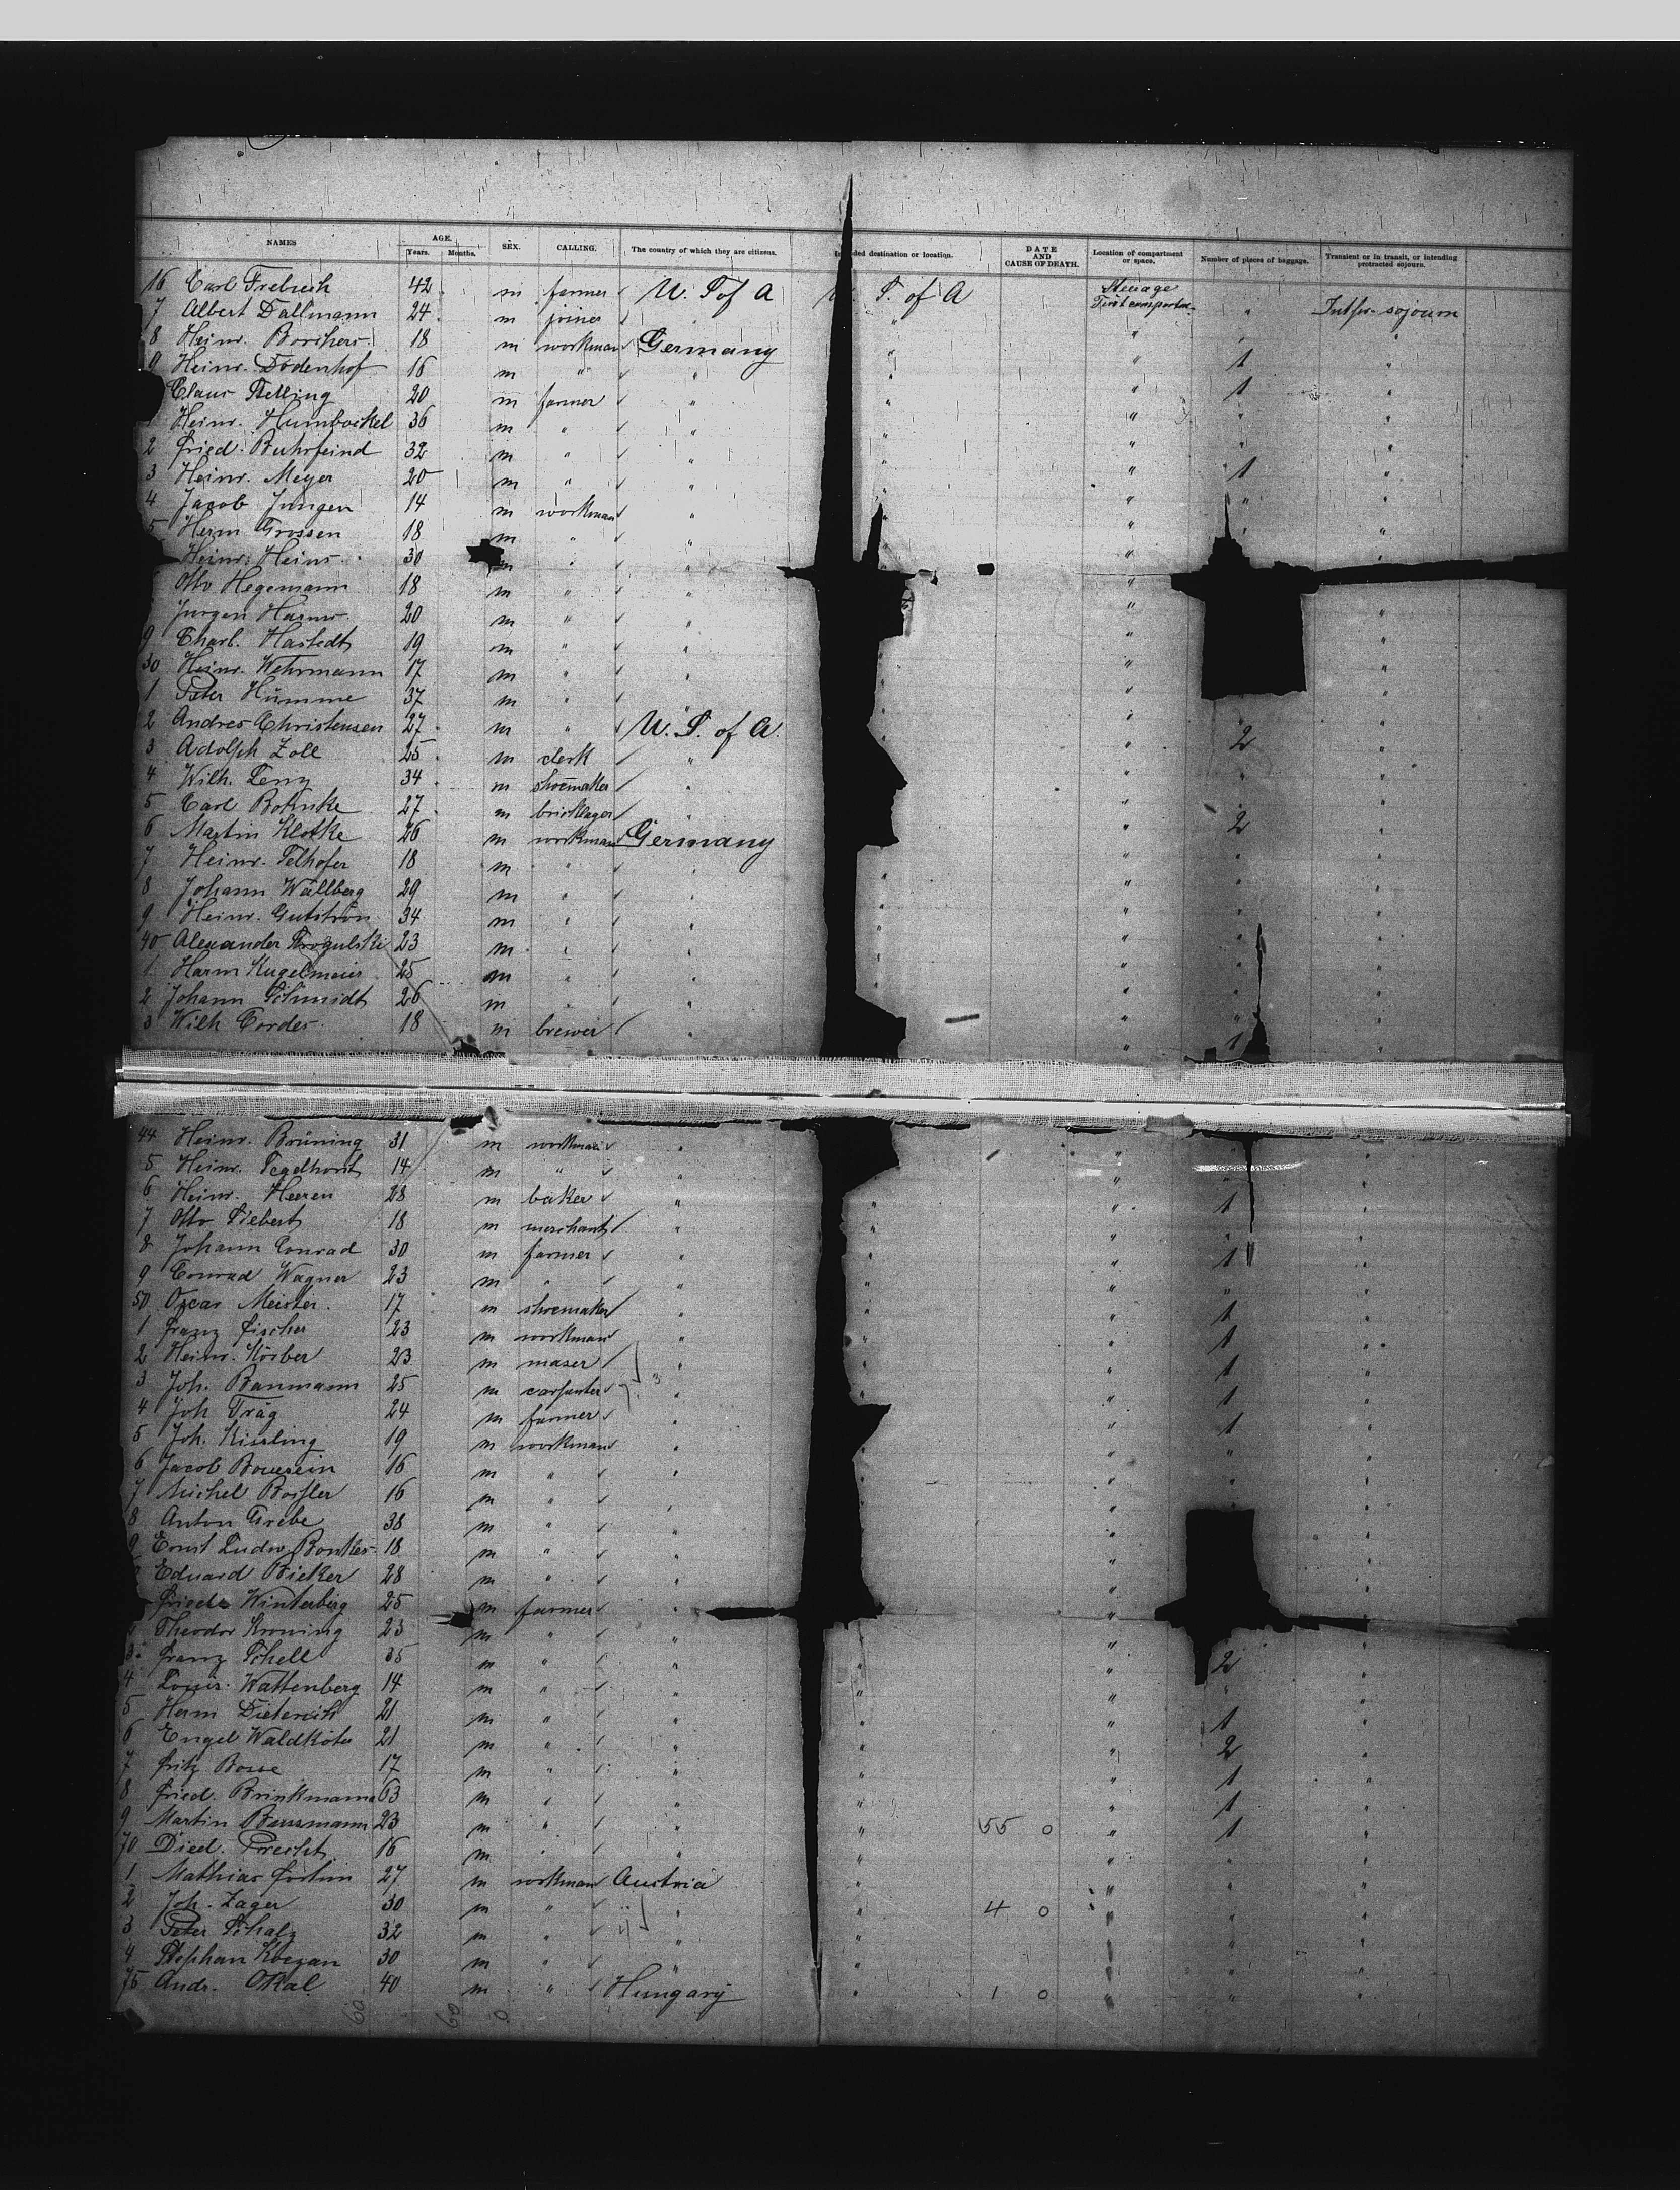 NAMES AGE. Years. Months. SEX. CALLING. The country of which they are citizens. ded destination or location. DATE AND CAUSE OF DEATH. Location of compartment or space. Number of pieces of baggage. Transient or in transit, or intending protracted sojourn.
16 Carl 42 m farmer U. S. of A U. S. of A Steerage
7 Albert Dallmann 24 m joiner " " sojourn
8 Heinr. Borchers 18 m workman Germany " " "
9 Heinr. Dodenhof 16 m " " " " 1 "
Claus Stelling 20 m farmer " " " 1 "
1 Heinr. Humbockel 36 m " " " " " "
2 Fried. Buhrfeind 32 m " " " " " "
3 Heinr. Meyer 20 m " " " " 1 "
4 Jacob Jungen 14 m workman " " " " "
5 Herm Grossen 18 m " " " " " "
Heinr. Heins 30 m " " "
Otto Hegemann 18 m " " " "
Jurgen Harms 20 m " " " "
9 Charl. Hastedt 19 m " " " " "
30 Heinr. Wehrmann 17 m " " " "
1 Peter Hümme 37 m " " " "
2 Andres Christensen 27 m " U. S. of A. " 2 "
3 Adolph Zoll 25 m clerk " " " "
4 Wilh. Lenz 34 m shoemaker " " " "
5 Carl Bohnke 27 m bricklayer " " 2 "
6 Martin Klotke 26 m workman Germany " " "
7 Heinr. Telhofer 18 m " " " " " "
8 Johann Wällberg 29 m " " " " " "
9 Heinr. 34 m " " " " " "
40 Alexander 23 m " " " " " "
1 Harm Kugelmeier 25 m " " " " "
2 Johann Schmidt 26 m " " " " "
3 Wilh Cordes 18 m brewer " " 1 "
44 Heinr. Brüning 31 m workman " " "
5 Heinr. Tegelhorst 14 m " " " " "
6 Heinr. Heeren 28 m baker " " " 1 "
7 Otto Siebert 18 m merchant " " " " "
8 Johann Conrad 30 m farmer " " " 1 "
9 Conrad Wagner 23 m " " " " " "
50 Oscar Meister 17 m shoemaker " " " 1 "
1 Franz Fischer 23 m workman " " " 1 "
2 Heinr. Körber 23 m maser " " " 1 "
3 Joh. Baumann 25 m carpenter " " " 1 "
4 Joh Träg 24 m farmer " " 1 "
5 Joh. Kissling 19 m workman " " " " "
6 Jacob 16 m " " " " " "
7 Michel 16 m " " " "
8 Anton Grebe 38 m " " " "
9 Ernst Ludw 18 m " " " "
Eduard Bicker 28 m " " " "
Winterberg 25 m farmer " " "
Theodor Kroning 23 m " " " " "
3 Franz Schell 35 m " " " " 2 "
4 Louis Wattenberg 14 m " " " " " "
5 Herm Dieterich 21 m " " " " 1 "
6 Engel Waldköter 21 m " " " " 2 "
7 Fritz Bosse 17 m " " " " 1 "
8 Fried. Brinkmann 63 m " " " " 1 "
9 Martin Bussmann 23 m " " " 55 0 " 1 "
70 Died. Precht 16 m " " " " " "
1 Mathias 27 m workman Austria " " "
2 Joh. Zager 30 m " " " 4 0 " " "
3 Peter Schalz 32 m " " " " "
4 Stephan 30 m " " " " "
75 Andr. Okal 40 m " Hungary " 1 0 " " "
60 60 0